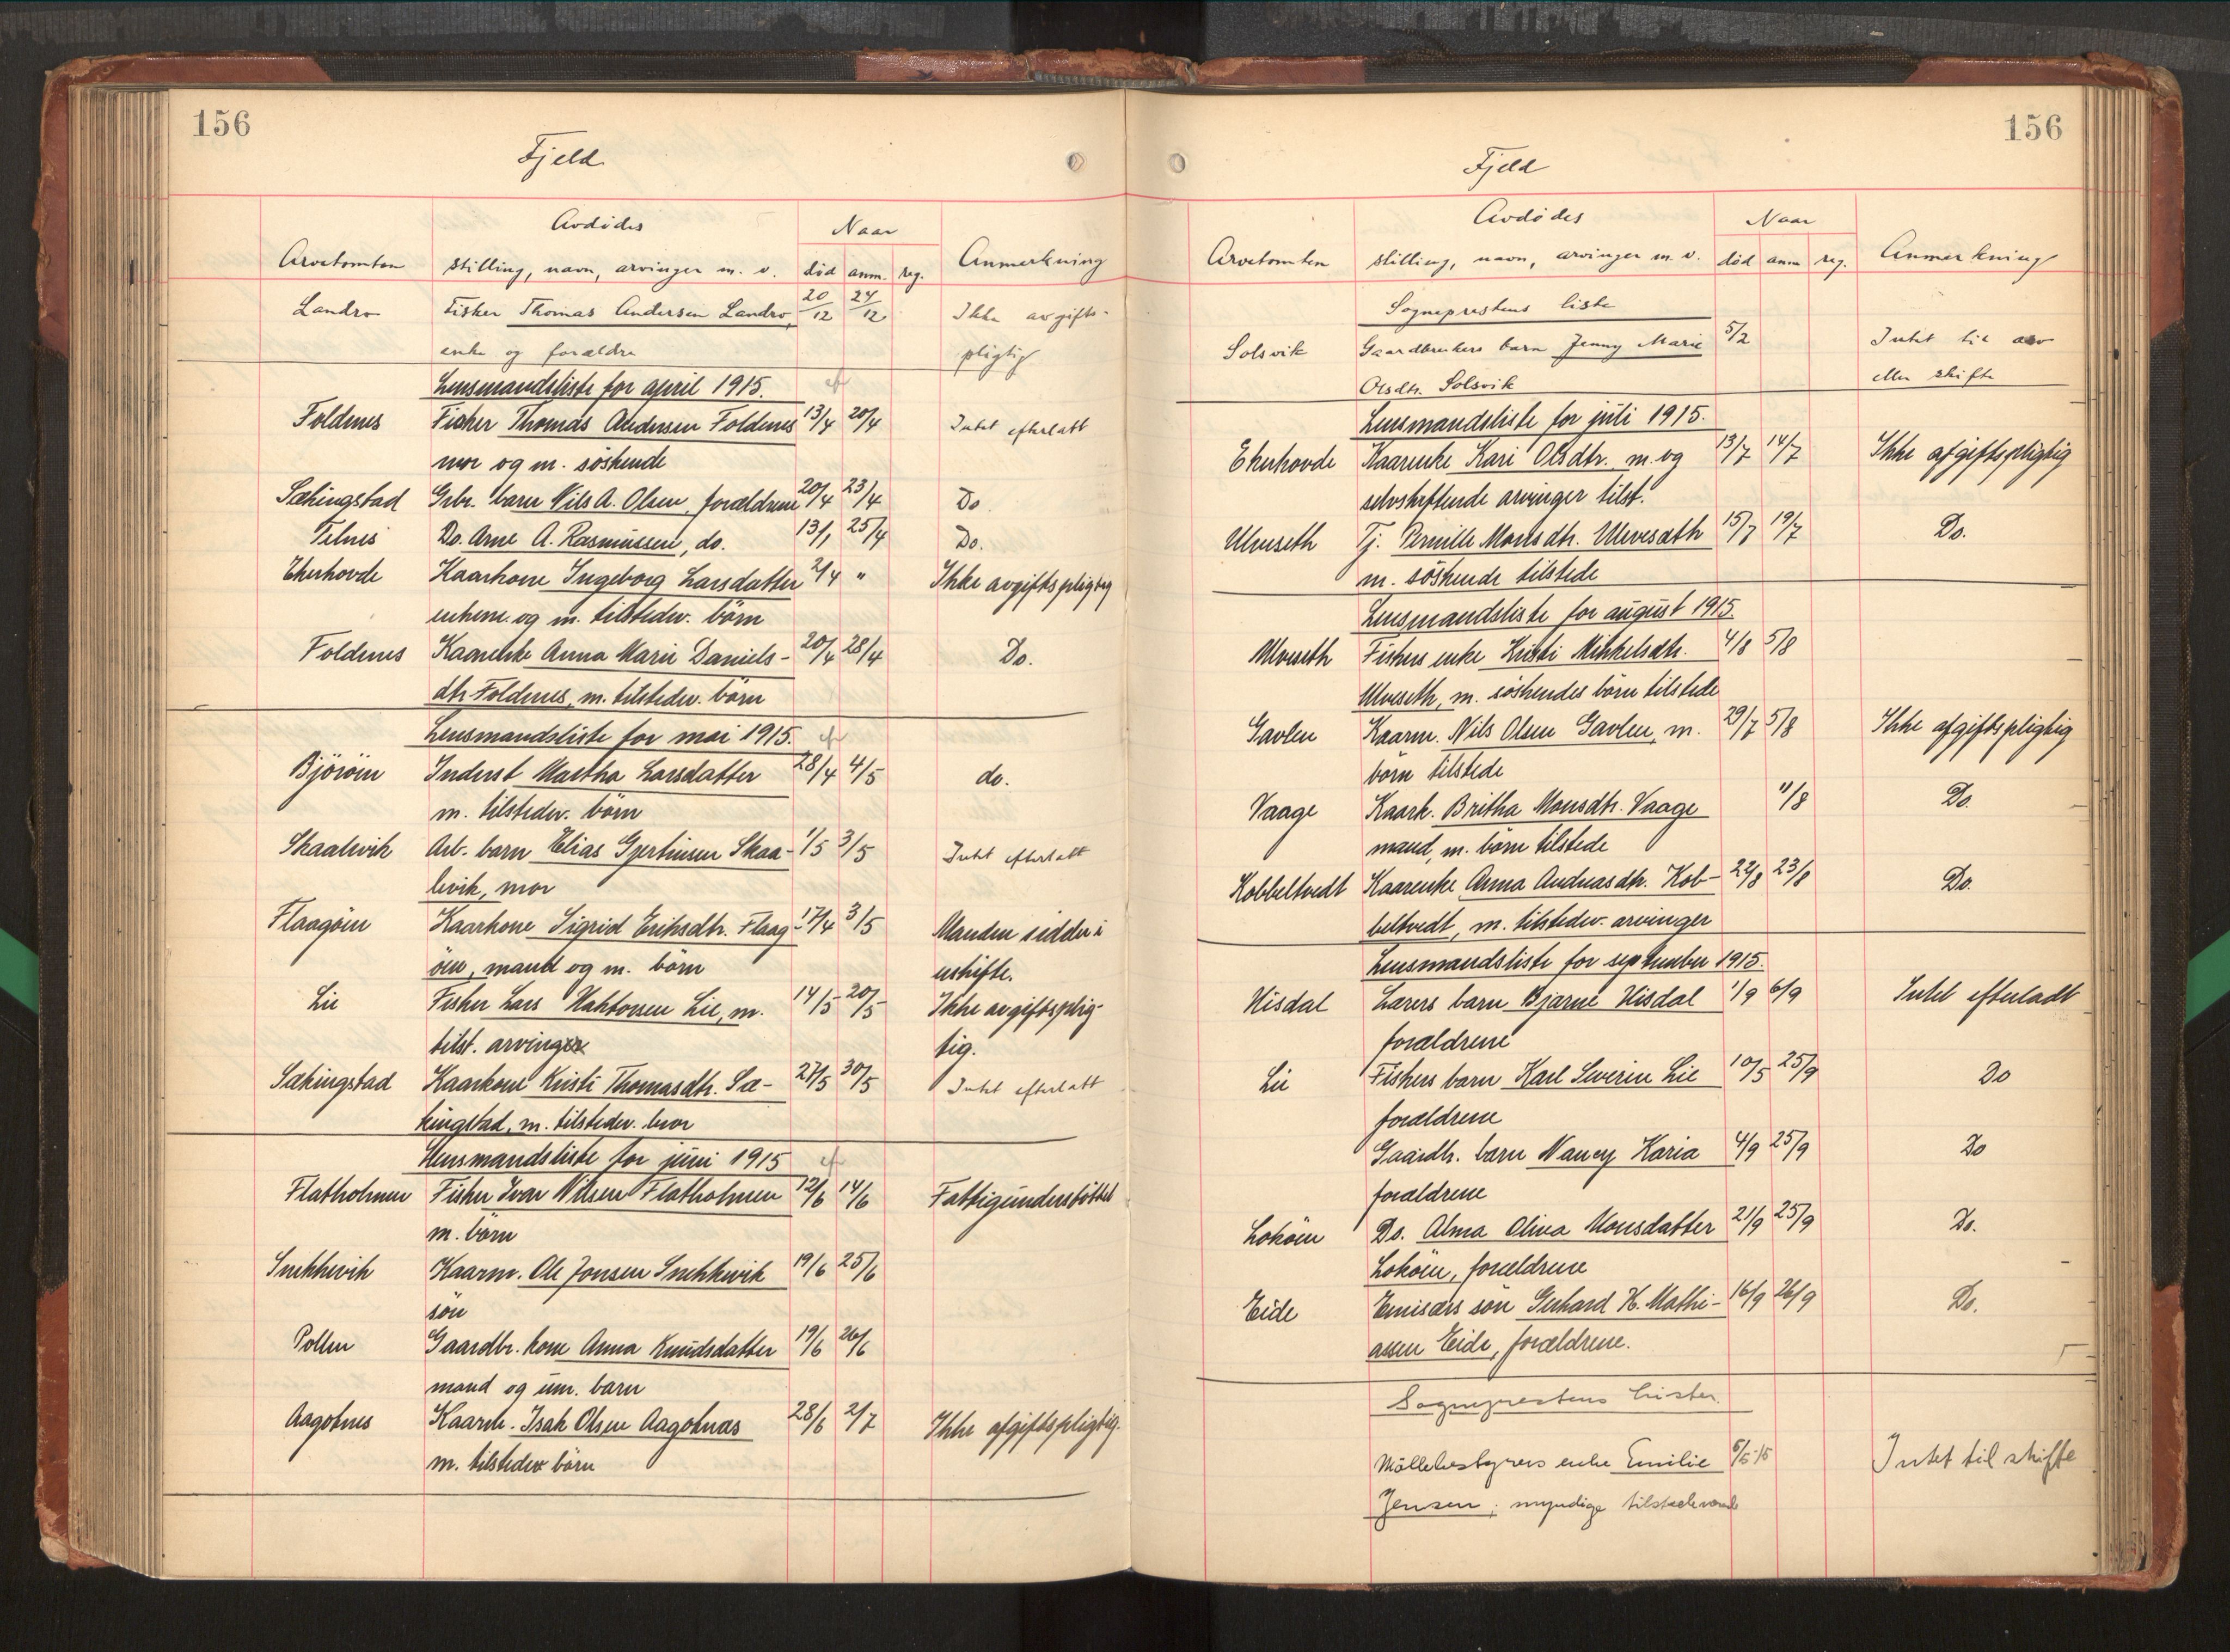 156
Fjeld
Avdødes
Naar
Arvetomten
stilling, navn, arvinger m. v.
død anm. reg.
Anmerkning
Landro Fisker Thomas Andersen Landro, 20/12 24/12 Ikke avgifts-
enke og forældre pligtig
Lensmandsliste for april 1915.
Foldnes Fisker Thomas Andersen Foldnes 13/4 20/4 Intet efterlatt
mor og m. söskende
Sækingstad Grbr. barn Nils A. Olsen, forældrene 20/4 23/4 Do
Telnes Do. Arne A. Rasmussen, do. 13/1 25/4 Do.
Ekerhovde Kaarkone Ingeborg Larsdatter 2/4 " Ikke avgiftspligtig
enkem. og m. tilstedev. börn
Foldnes Kaarenke Anna Marie Daniels- 20/4 28/4 Do.
dtr Foldnes, m. tilstedev. börn
Lensmandsliste for mai 1915.
Björöen Inderst Martha Larsdatter 28/4 4/5 do.
m. tilstedev. börn
Skaalevik Arb. barn Elias Gjertinsen Skaa- 1/5 3/5 Intet efterlatt
levik, mor
Flaagöen Kaarkone Sigrid Eriksdtr. Flaag- 17/4 3/5 Manden sidder i
öen, mand og m. börn uskifte.
Lie Fisker Lars Haktorsen Lie, m. 14/5 20/5 Ikke avgiftsplig-
tilst. arvinger tig.
Sækingstad Kaarkone Kristi Thomasdtr. Sæ- 27/5 30/5 Intet efterlatt
kingstad, m. tilstedev. bror
Lensmandsliste for juni 1915
Flatholmen Fisker Ivar Nilsen Flatholmen 12/6 14/6 Fattigunderstöttet
m. börn
Snekkevik Kaarm. Ole Jonsen Snekkevik 19/6 25/6
sön
Pollen Gaardbr. kone Anna Knudsdatter 19/6 26/6
mand og um. barn
Aagotnes Kaarm. Isak Olsen Aagotnæs 28/6 2/7 Ikke afgiftspligtig.
m. tilstedev börn
156
Fjeld
Avdødes
Naar
Arvetomten
stilling, navn, arvinger m. v.
død anm reg.
Anmerkning
Sogneprestens liste
Solsvik Gaardbrukers barn Jenny Marie 5/2 Intet til arv
Olsdtr. Solsvik eller skifte
Lensmandsliste for juli 1915.
Ekerhovde Kaarenke Kari Olsdtr. m. og 13/7 14/7 Ikke afgiftspligtig
selvskiftende arvinger tilst.
Ulveseth Tj. Pernille Monsdtr. Ulvesæth 15/7 19/7 Do.
m. söskende tilstede
Lensmandsliste for august 1915.
Ulveseth Fiskers enke Kristi Mikkelsdtr. 4/8 5/8
Ulveseth, m. söskendes börn tilstede
Gavlen Kaarm. Nils Olsen Gavlen, m. 29/7 5/8 Ikke afgiftspligtig
börn tilstede
Vaage Kaark. Britha Monsdtr. Vaage 11/8 Do.
mand, m. börn tilstede
Kobbeltvedt Kaarenke Anna Andreasdtr. Kob- 22/8 23/8 Do.
beltvedt, m. tilstedev. arvinger
Lensmandsliste for september 1915.
Nisdal Lærers barn Bjarne Nisdal 1/9 6/9 Intet efterladt
forældrene
Lie Fiskers barn Karl Severin Lie 10/5 25/9 Do
forældrene
Gaardb. barn Nancy Karia 4/9 25/9 Do
forældrene
Loköen Do. Alma Oliva Monsdatter 21/9 25/9 Do.
Loköen, forældrene
Eide Emisærs sön Gerhard K. Mathi- 16/9 26/9 Do.
assen Eide, forældrene.
Sogneprestens lister.
Möllebestyrers enke Emilie 6/5-15 Intet til skifte
Jensen; myndige tilstedeværende